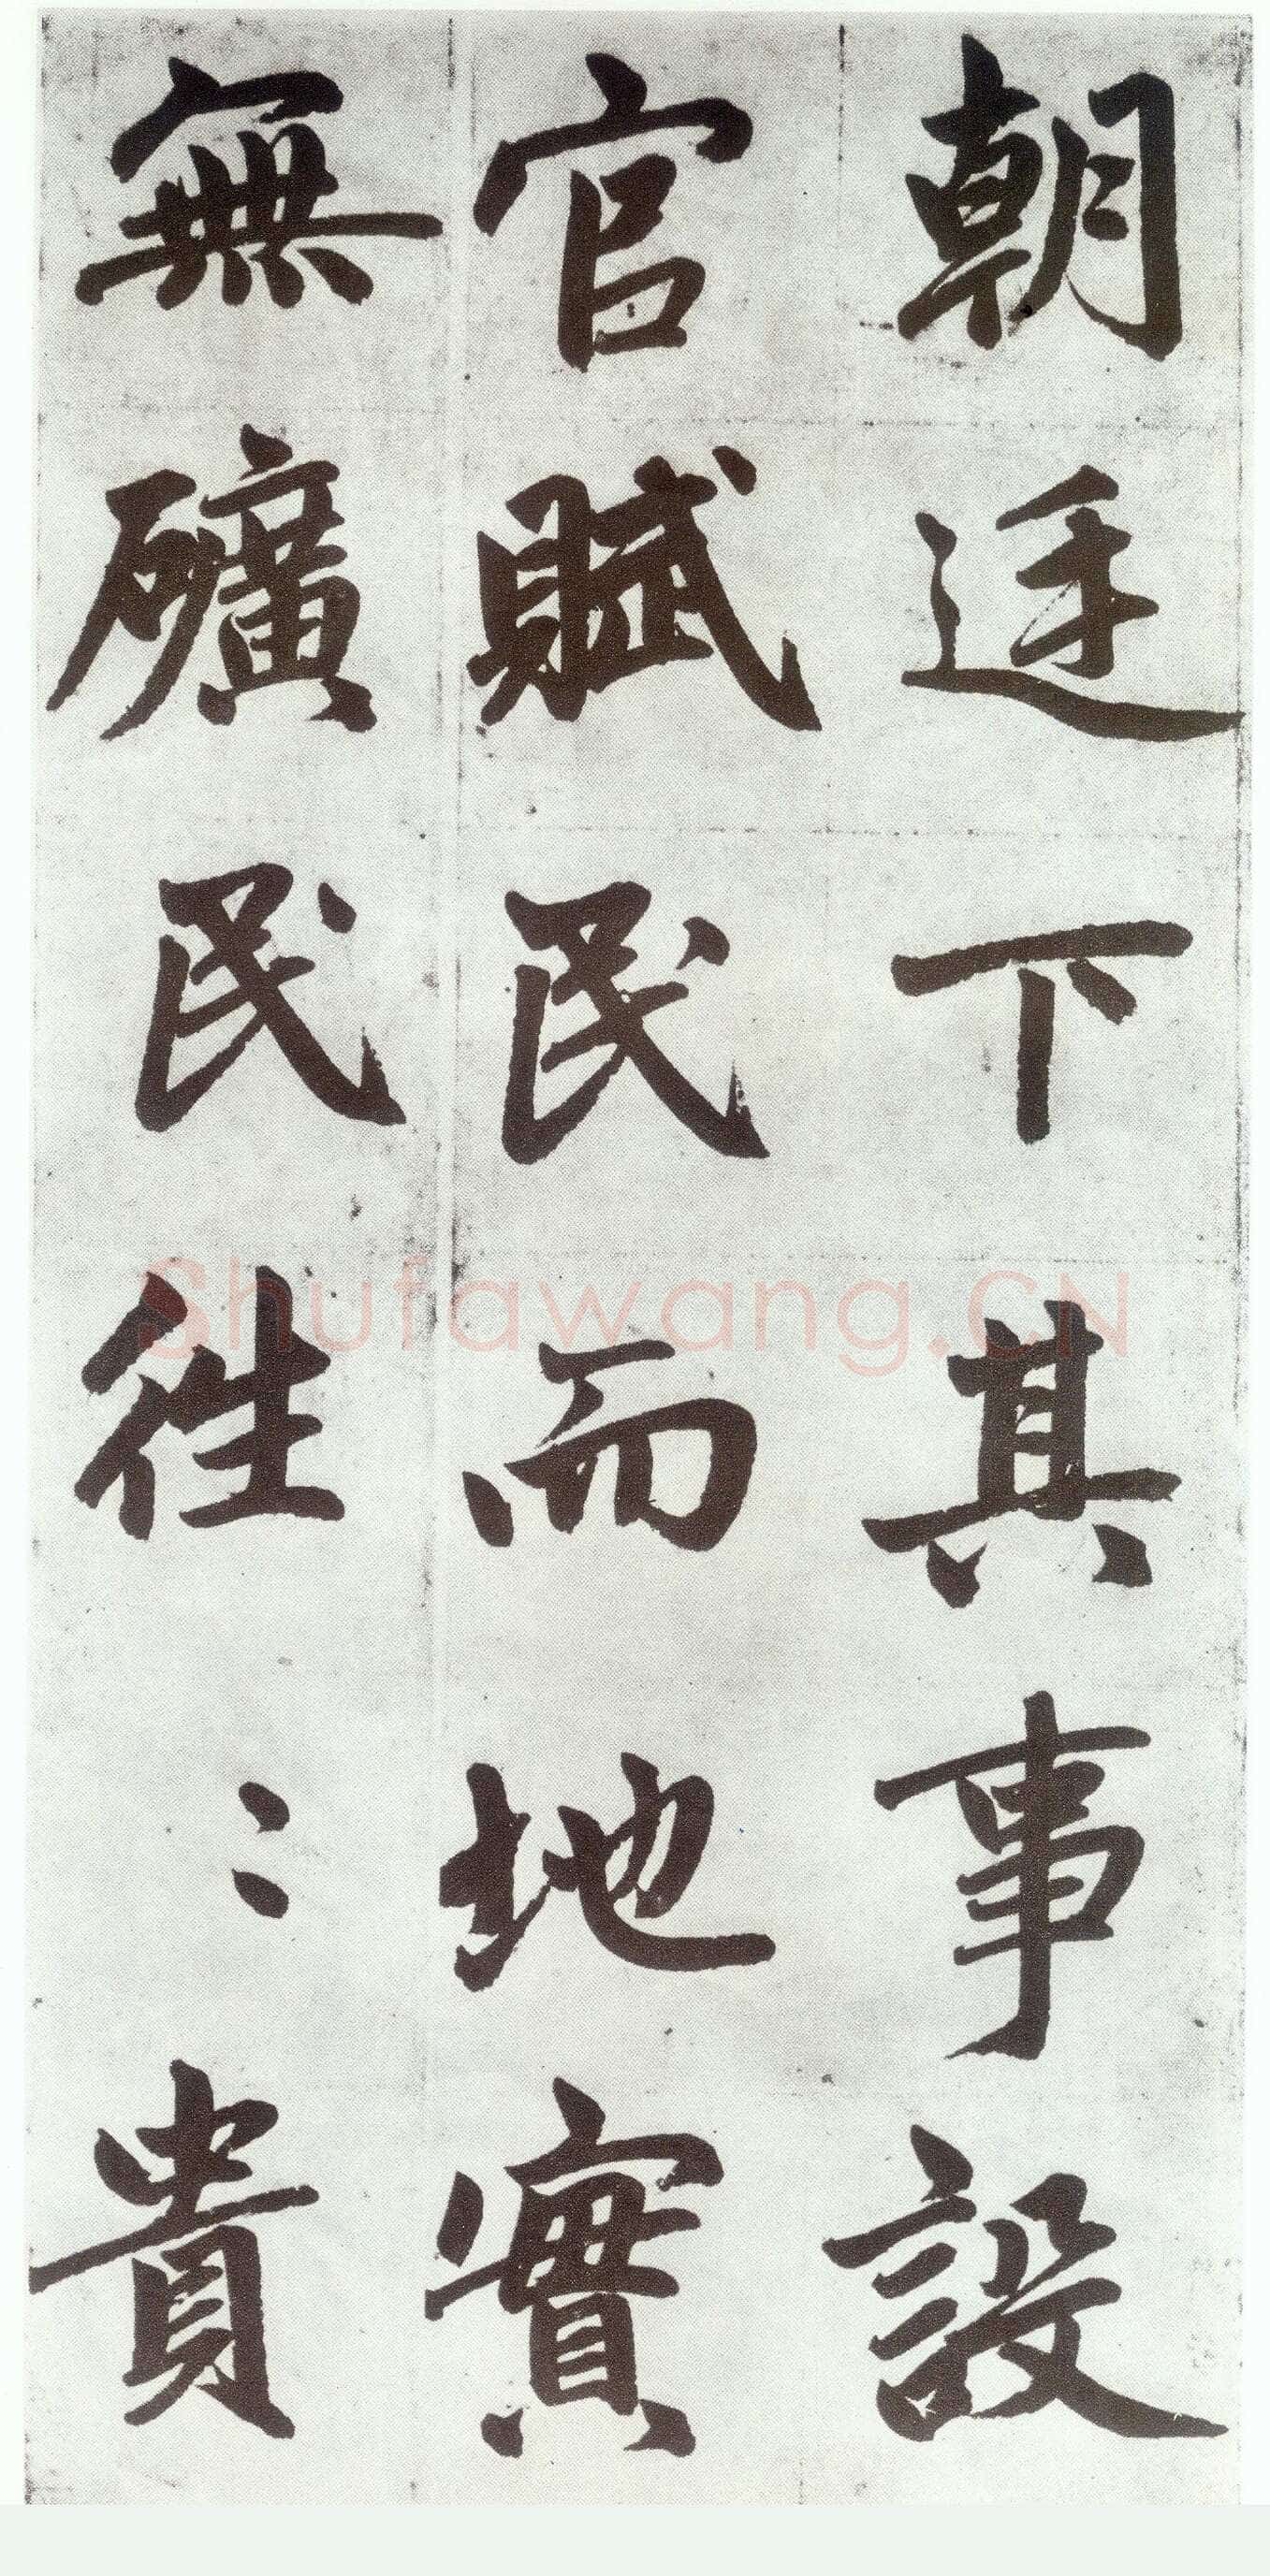 朝廷下其事設
官賦民而地實
無礦民往〻貴
Shufawang.CN